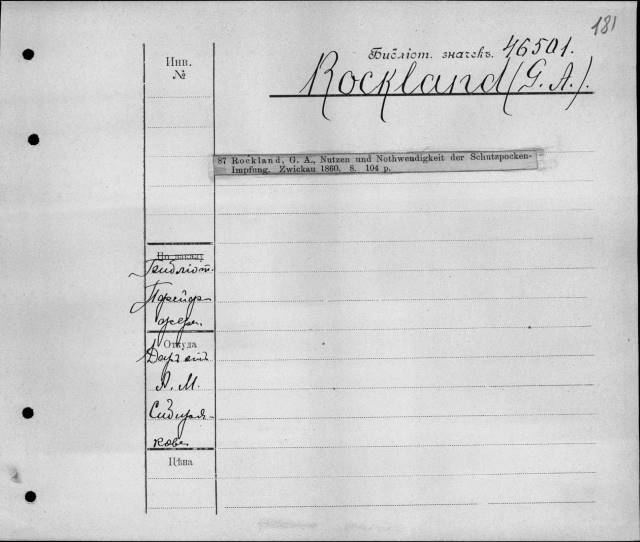 181
Библіот. значекъ. 46501.
Инв.
№
Rockland (G. A.).
87 Rockland, G. A., Nutzen und Nothwendigkeit der Schutzpocken-
Impfung. Zwickau 1860. 8. 104 p.
По заказу
Библіот.
Откуда
Даръ отъ
А. М.
Сибиряк-
кова
Цѣна